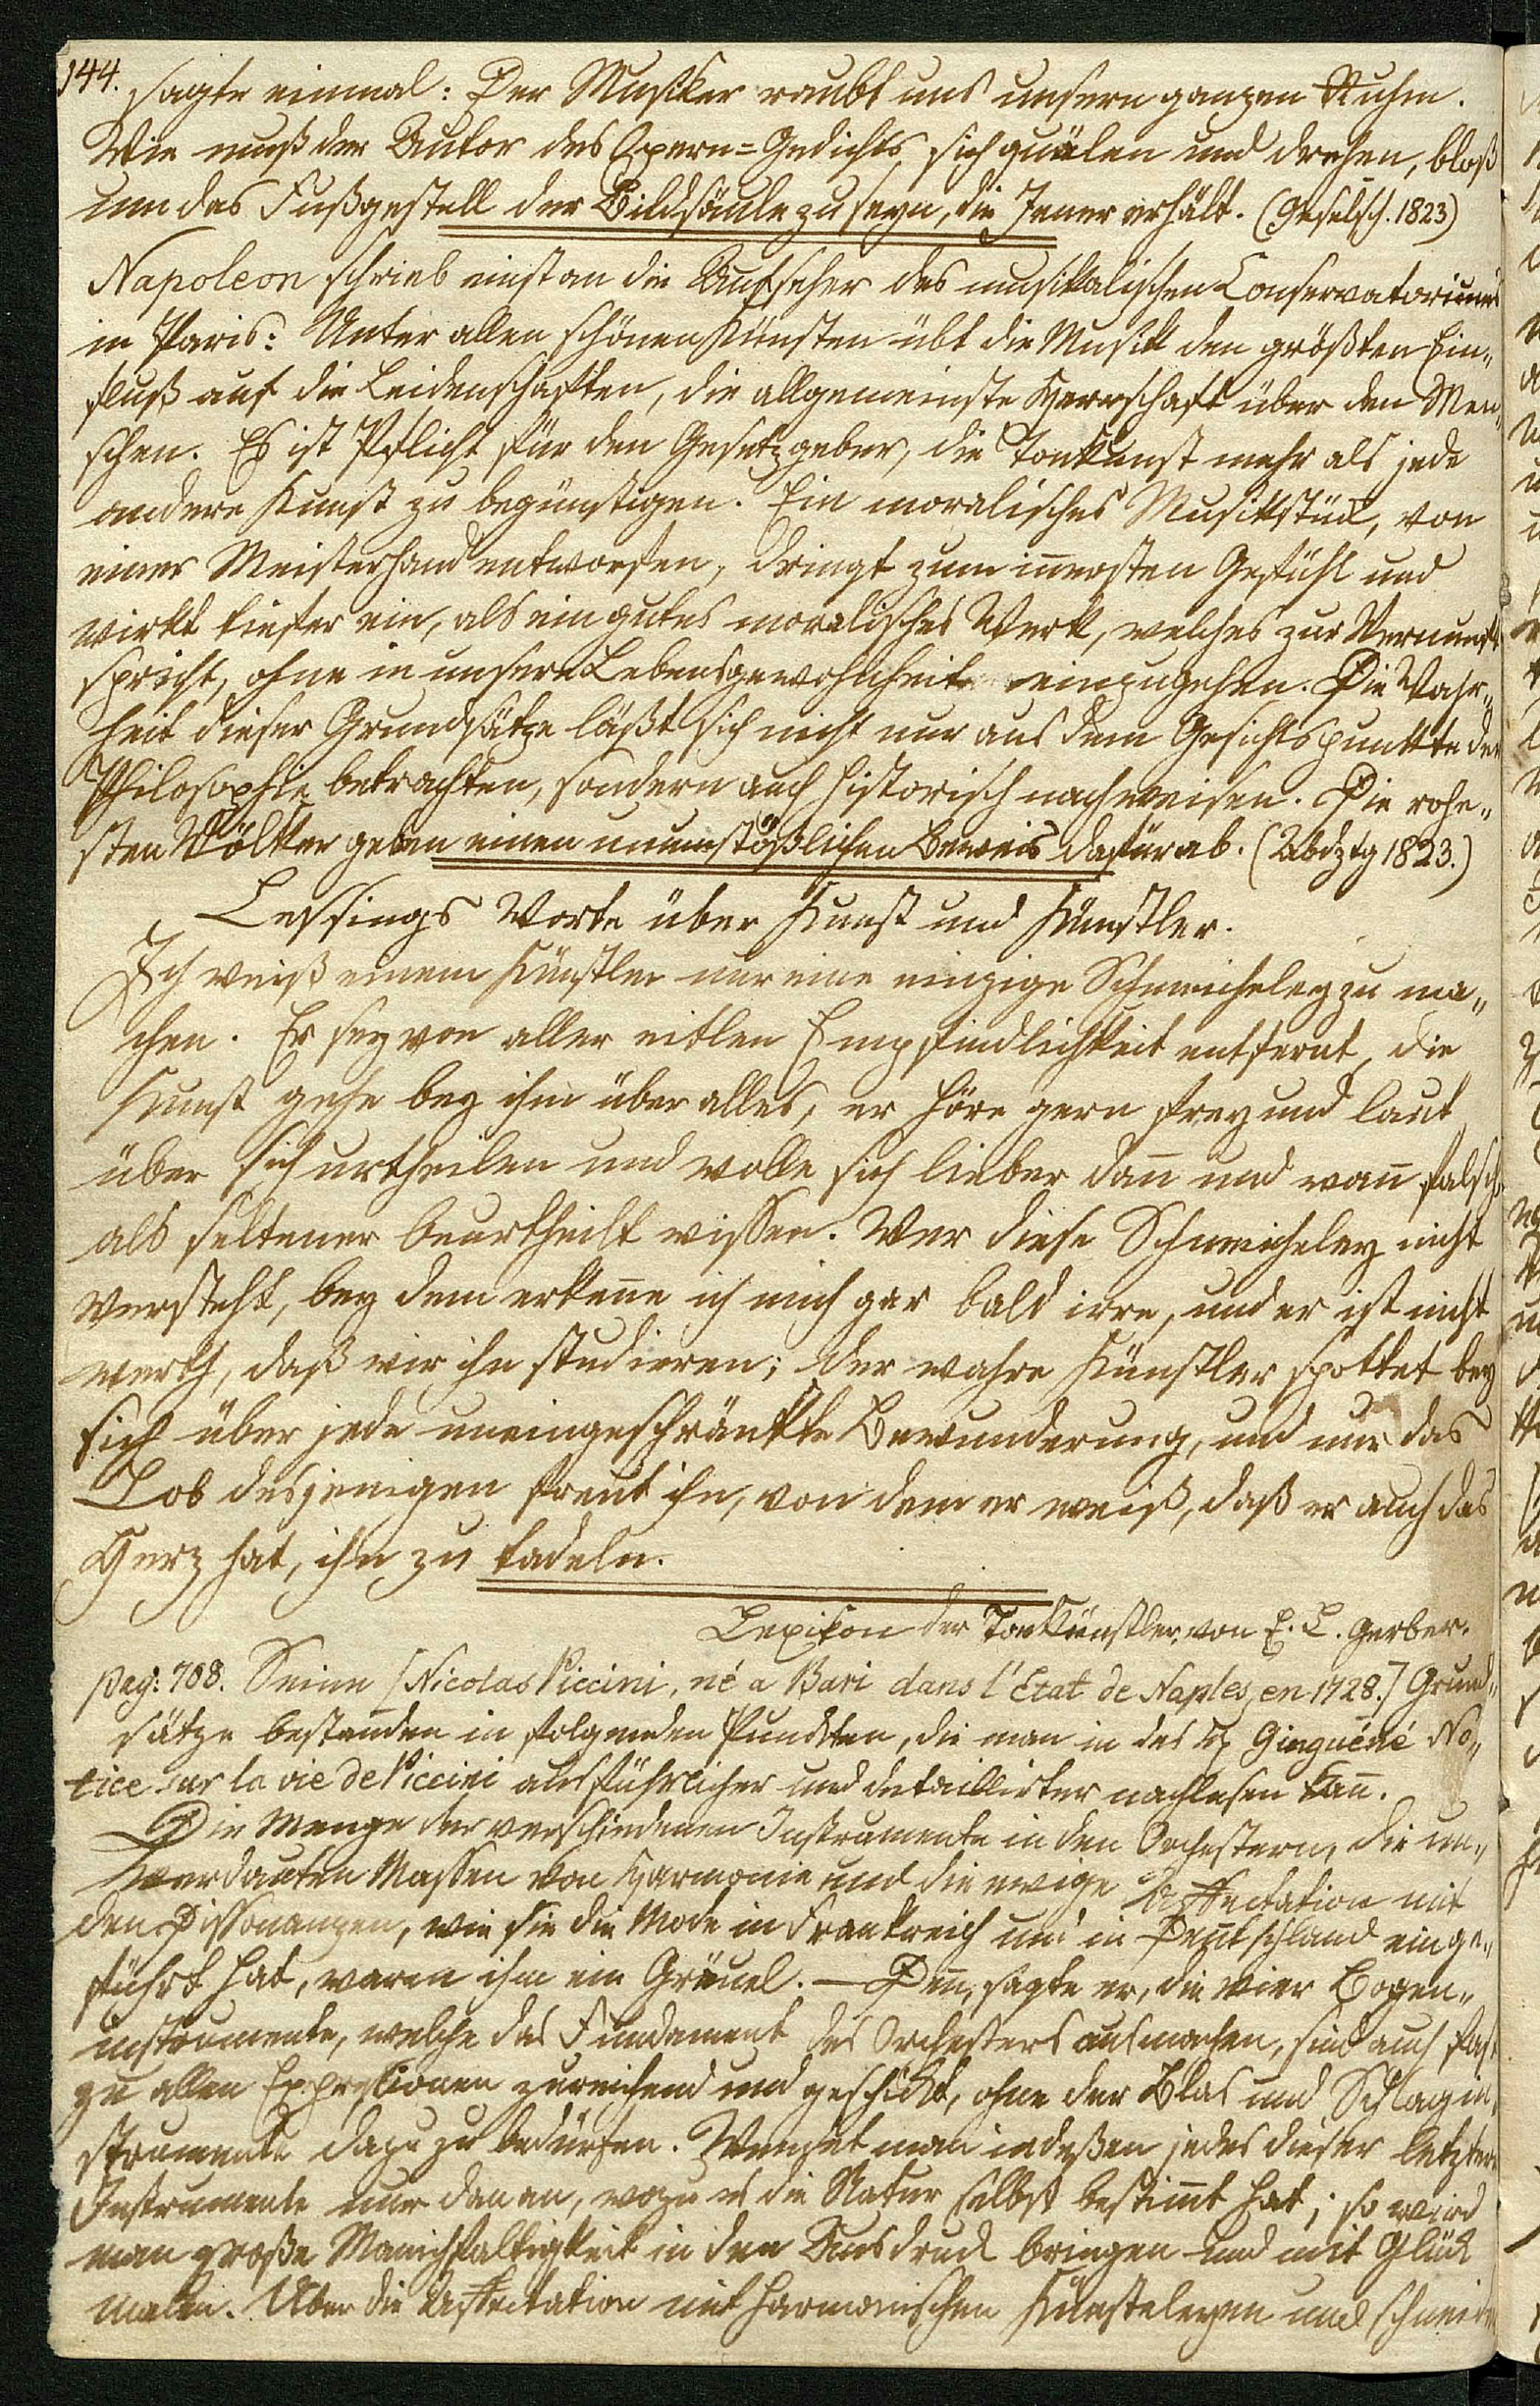 144. sagte einmal: Der Musiker raubt uns unsern ganzen Ruhm.
Wie muß der Autor des Opern=Gedichts sich quälen und drehen, bloß
um das Fußgestell der Bildsäule zu seyn, die Jener erhält. (Gesellsch. 1823)
Napoleon schrieb einst an die Aufseher des musikalischen Conservatoriums
in Paris: Unter allen schönen Künsten übt die Musik den größten Ein„
fluß auf die Leidenschaften, die allgemeinste Herrschaft über den Men„
schen. Es ist Pflicht für den Gesetzgeber, die Tonkunst mehr als jede
andere Kunst zu begünstigen. Ein moralisches Musikstück, von
einer Meisterhand entworfen, dringt zum iñersten Gefühl und
wirkt tiefer ein, als ein gutes moralisches Werk, welches zur Vernunft
spricht, ohne in unsere Lebensgewohnheit einzugehen. Die Wahr„
heit dieser Grundsätze läßt sich nicht nur aus dem Gesichtspunkte der
Philosophie betrachten, sondern auch historisch nachweisen. Die rohe„
sten Völker geben einen unumstößlichen Beweis dafür ab. (Abdztg 1823.)
Lessings Worte über Kunst und Künstler.
Ich weiß einem Künstler nur eine einzige Schmeicheley zu ma„
chen. Er sey von aller eitlen Empfindlichkeit entfernt, die
Kunst gehe bey ihm über alles, er höre gern frey und laut
über sich urtheilen und wolle sich lieber dañ und wañ falsch,
als seltener beurtheilt wissen. Wer diese Schmeicheley nicht
versteht, bey dem erkeñe ich mich gar bald irre, und er ist nicht
werth, daß wir ihn studieren; der wahre Künstler spottet bey
sich über jede uneingeschränkte Bewunderung, und nur das
Lob desjenigen freut ihn, von dem er weiß, daß er auch das
Herz hat, ihn zu tadeln.
Lexikon der Tonkünstler, von E. L. Gerber.
pag: 708. Seine [Nicolas Piccini, né a Bari dans l'État de Naples, en 1728.] Grund„
sätze bestanden in folgenden Punckten, die man in des Ginguéné No„
tice sur la vie de Piccini ausführlicher und detaillirter nachlesen kañ.
Die Menge der verschiedenen Instrumente in den Orchestern, die un„
verdauten Massen von Harmonie und die ewige Affectation mit
den Dissonanzen, wie sie die Mode in Frankreich und in Deutschland einge„
führt hat, waren ihm ein Gräuel. — Deñ, sagte er, die vier Bogen„
instrumente, welche das Fundament des Orchesters ausmachen, sind auch fast
zu allen Expressionen zureichend und geschickt, ohne der Blas und Schlagin„
strumente dazu zu bedürfen. Wendet man indeßen jedes dieser letztern
Instrumente nur dañ an, wozu es die Natur selbst bestimt hat; so wird
man große Manichfaltigkeit in den Ausdruck bringen und mit Glück
malen. Aber die Affectation mit harmonischen Künsteleyen und schneiden